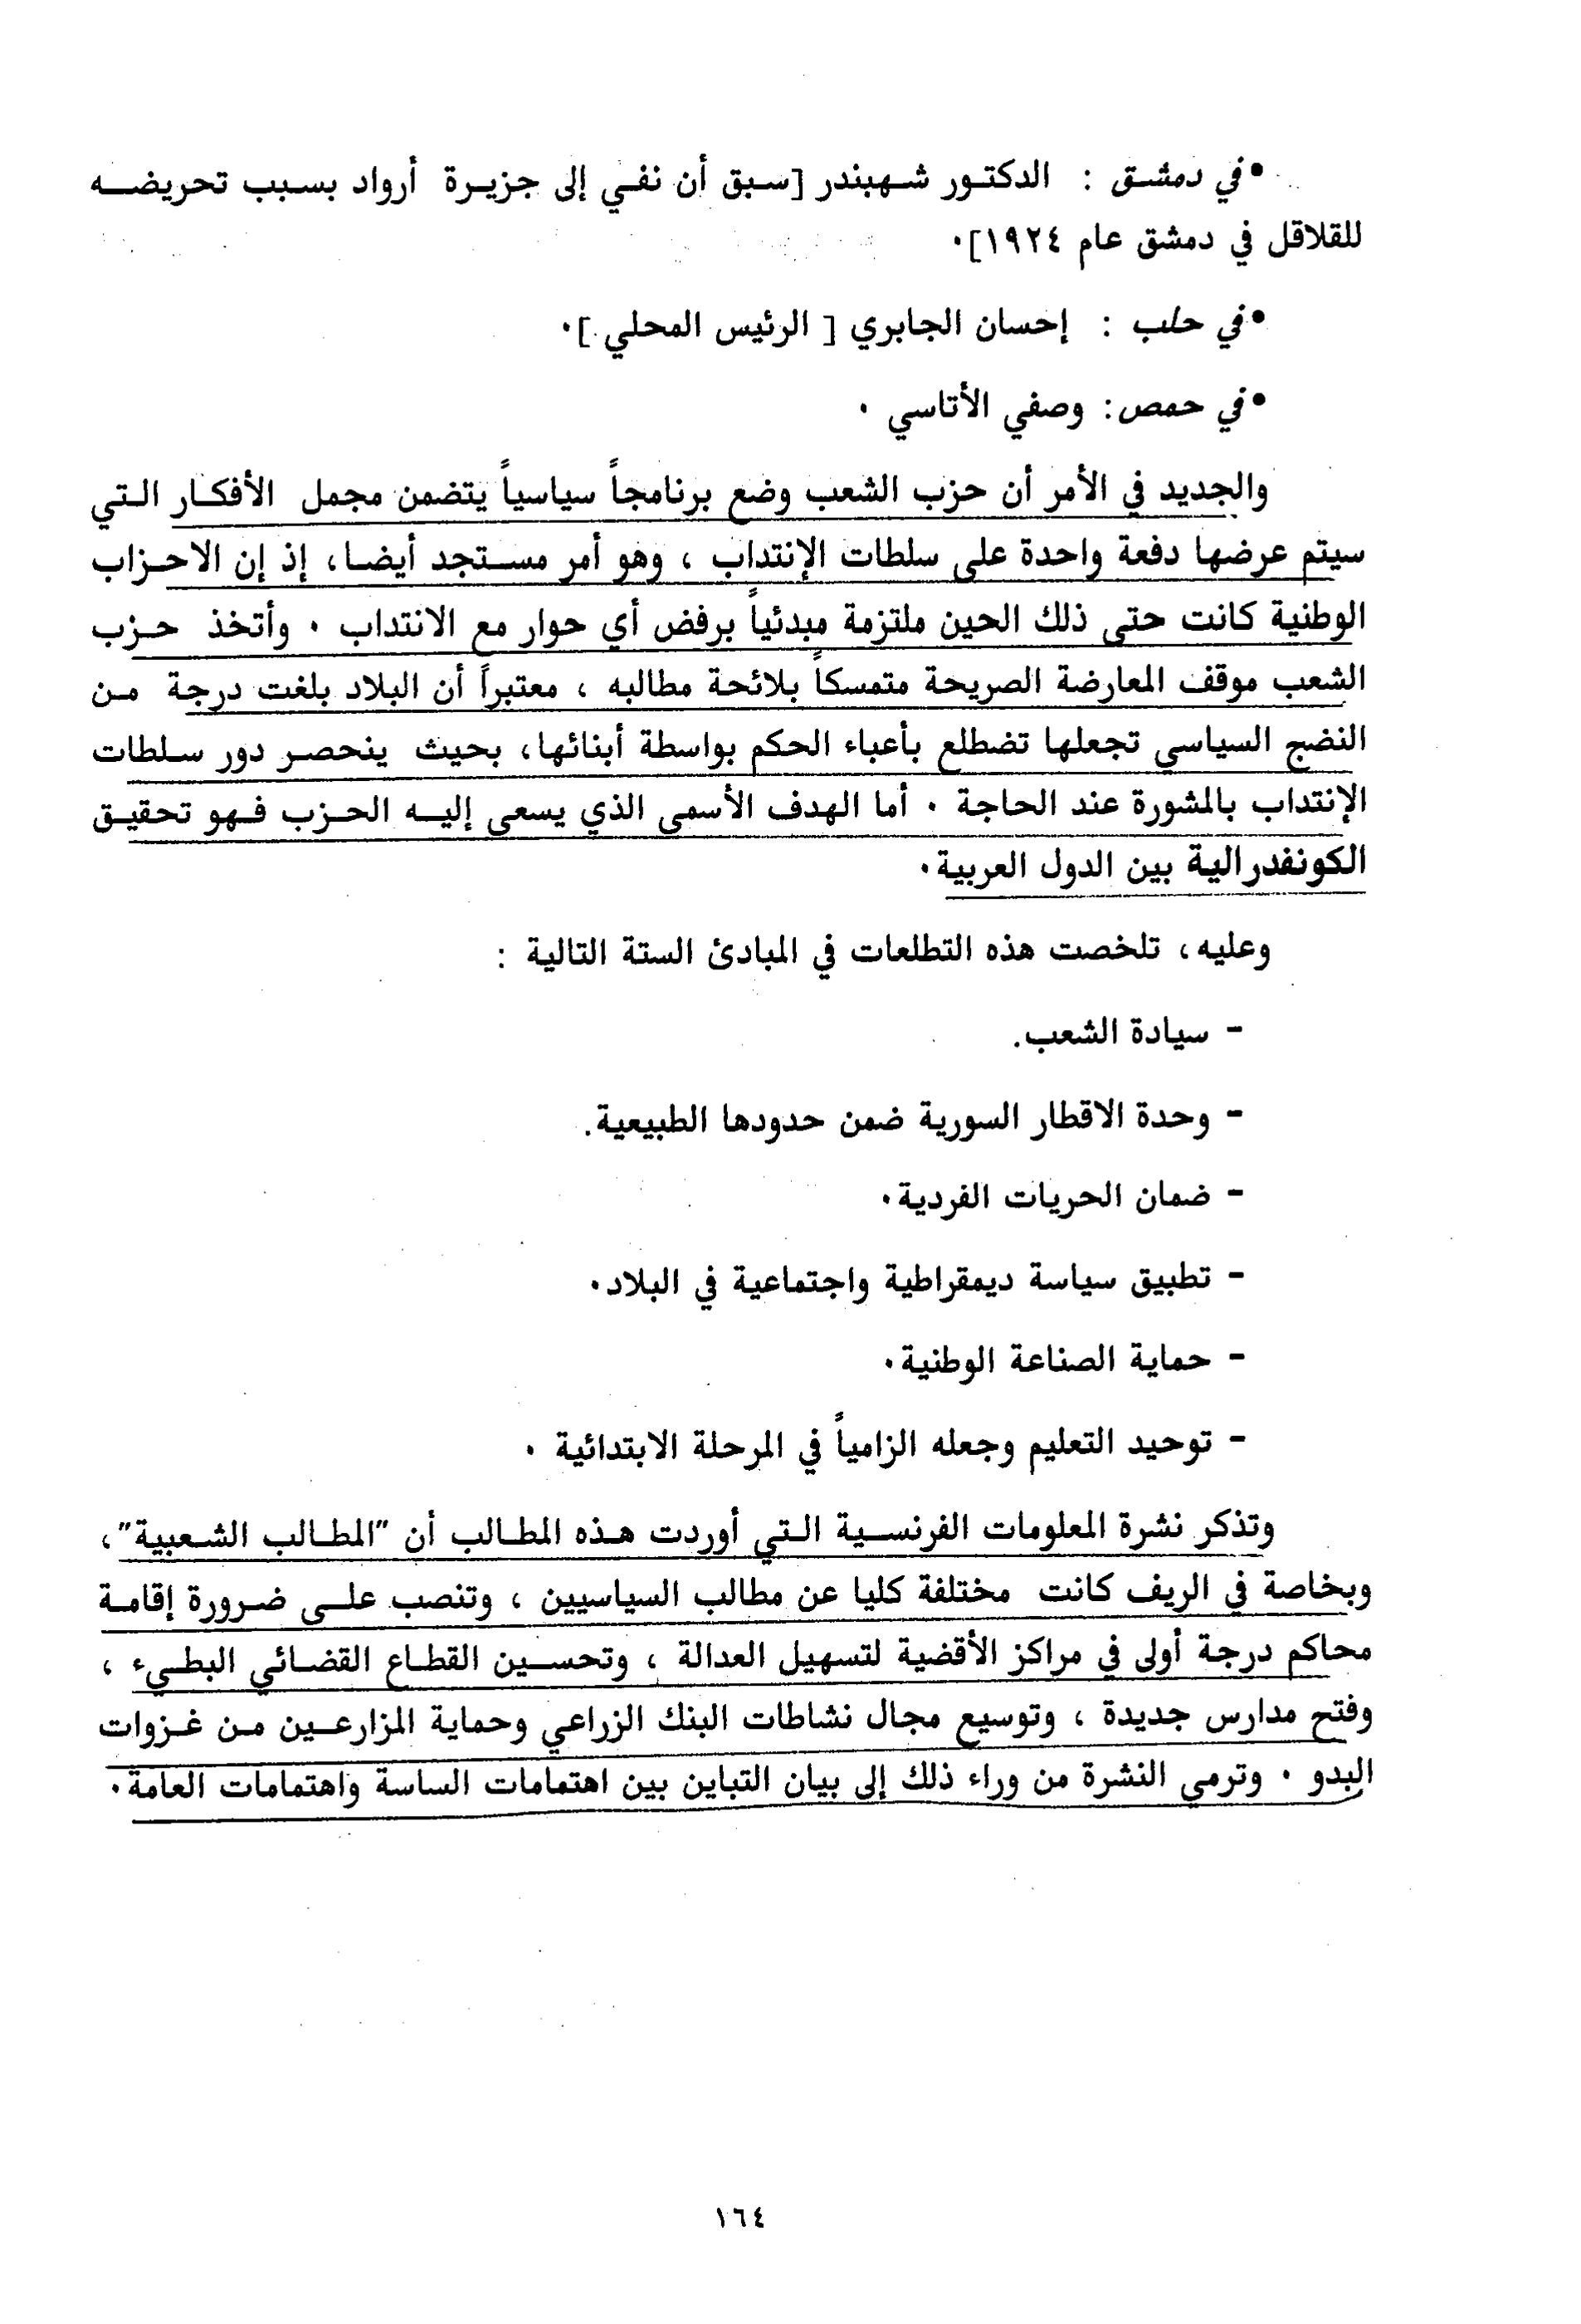 •في دمشق : الدكتور شهبندر [سبق أن نفي إلى جزيرة أرواد بسبب تحريضه
للقلاقل في دمشق عام ١٩٢٤].
•في حلب : إحسان الجابري [ الرئيس المحلي ].
•في حمص: وصفي الأتاسي .
والجديد في الأمر أن حزب الشعب وضع برنامجاً سياسياً يتضمن مجمل الأفكار التي
سيتم عرضها دفعة واحدة على سلطات الإنتداب ، وهو أمر مستجد أيضا، إذ إن الاحزاب
الوطنية كانت حتى ذلك الحين ملتزمة مبدئياً برفض أي حوار مع الانتداب . وأتخذ حزب
الشعب موقف المعارضة الصريحة متمسكاً بلائحة مطالبه ، معتبراً أن البلاد بلغت درجة من
النضج السياسي تجعلها تضطلع بأعباء الحكم بواسطة أبنائها، بحيث ينحصر دور سلطات
الإنتداب بالمشورة عند الحاجة . أما الهدف الأسمى الذي يسعى إليه الحزب فهو تحقيق
الكونفدرالية بين الدول العربية.
وعليه، تلخصت هذه التطلعات في المبادئ الستة التالية :
- سيادة الشعب.
- وحدة الاقطار السورية ضمن حدودها الطبيعية.
- ضمان الحريات الفردية.
- تطبيق سياسة ديمقراطية واجتماعية في البلاد.
- حماية الصناعة الوطنية.
- توحيد التعليم وجعله الزامياً في المرحلة الابتدائية .
وتذكر نشرة المعلومات الفرنسية التي أوردت هذه المطالب أن "المطالب الشعبية"،
وبخاصة في الريف كانت مختلفة كليا عن مطالب السياسيين ، وتنصب على ضرورة إقامة
محاكم درجة أولى في مراكز الأقضية لتسهيل العدالة ، وتحسين القطاع القضائي البطيء ،
وفتح مدارس جديدة ، وتوسيع مجال نشاطات البنك الزراعي وحماية المزارعين من غزوات
البدو . وترمي النشرة من وراء ذلك إلى بيان التباين بين اهتمامات الساسة واهتمامات العامة.
١٦٤